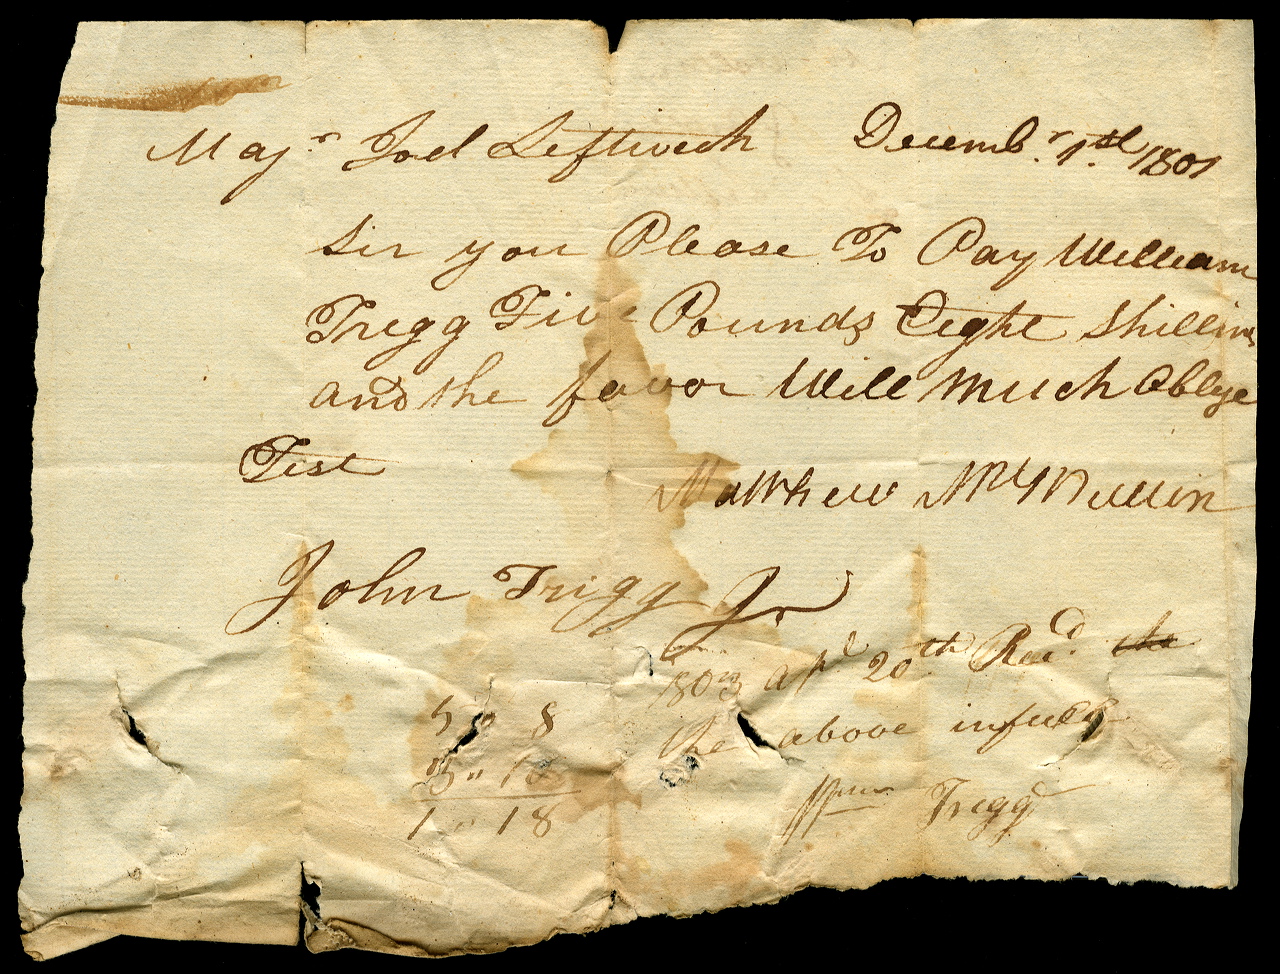 Majr Joel Leftwich Decembr 1st 1801
Sir you Please To Pay William
Trigg Five Pounds Eight Shillings
and the favor Will Much Oblyge
Test Matthew McMullin
John Trigg Jr
1803 apl 20th Recd the
the above in full
Wm Trigg
5 " 8
3 " 10
1 " 18